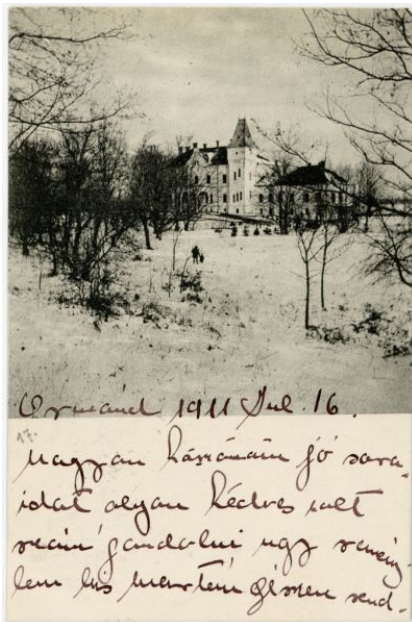 Ormánd 1911 Jul. 16.
17.
Nagyon köszönöm jó sora-
idat olyan kedves volt
reám gondolni úgy remény-
lem kis Mártém egészen rend-